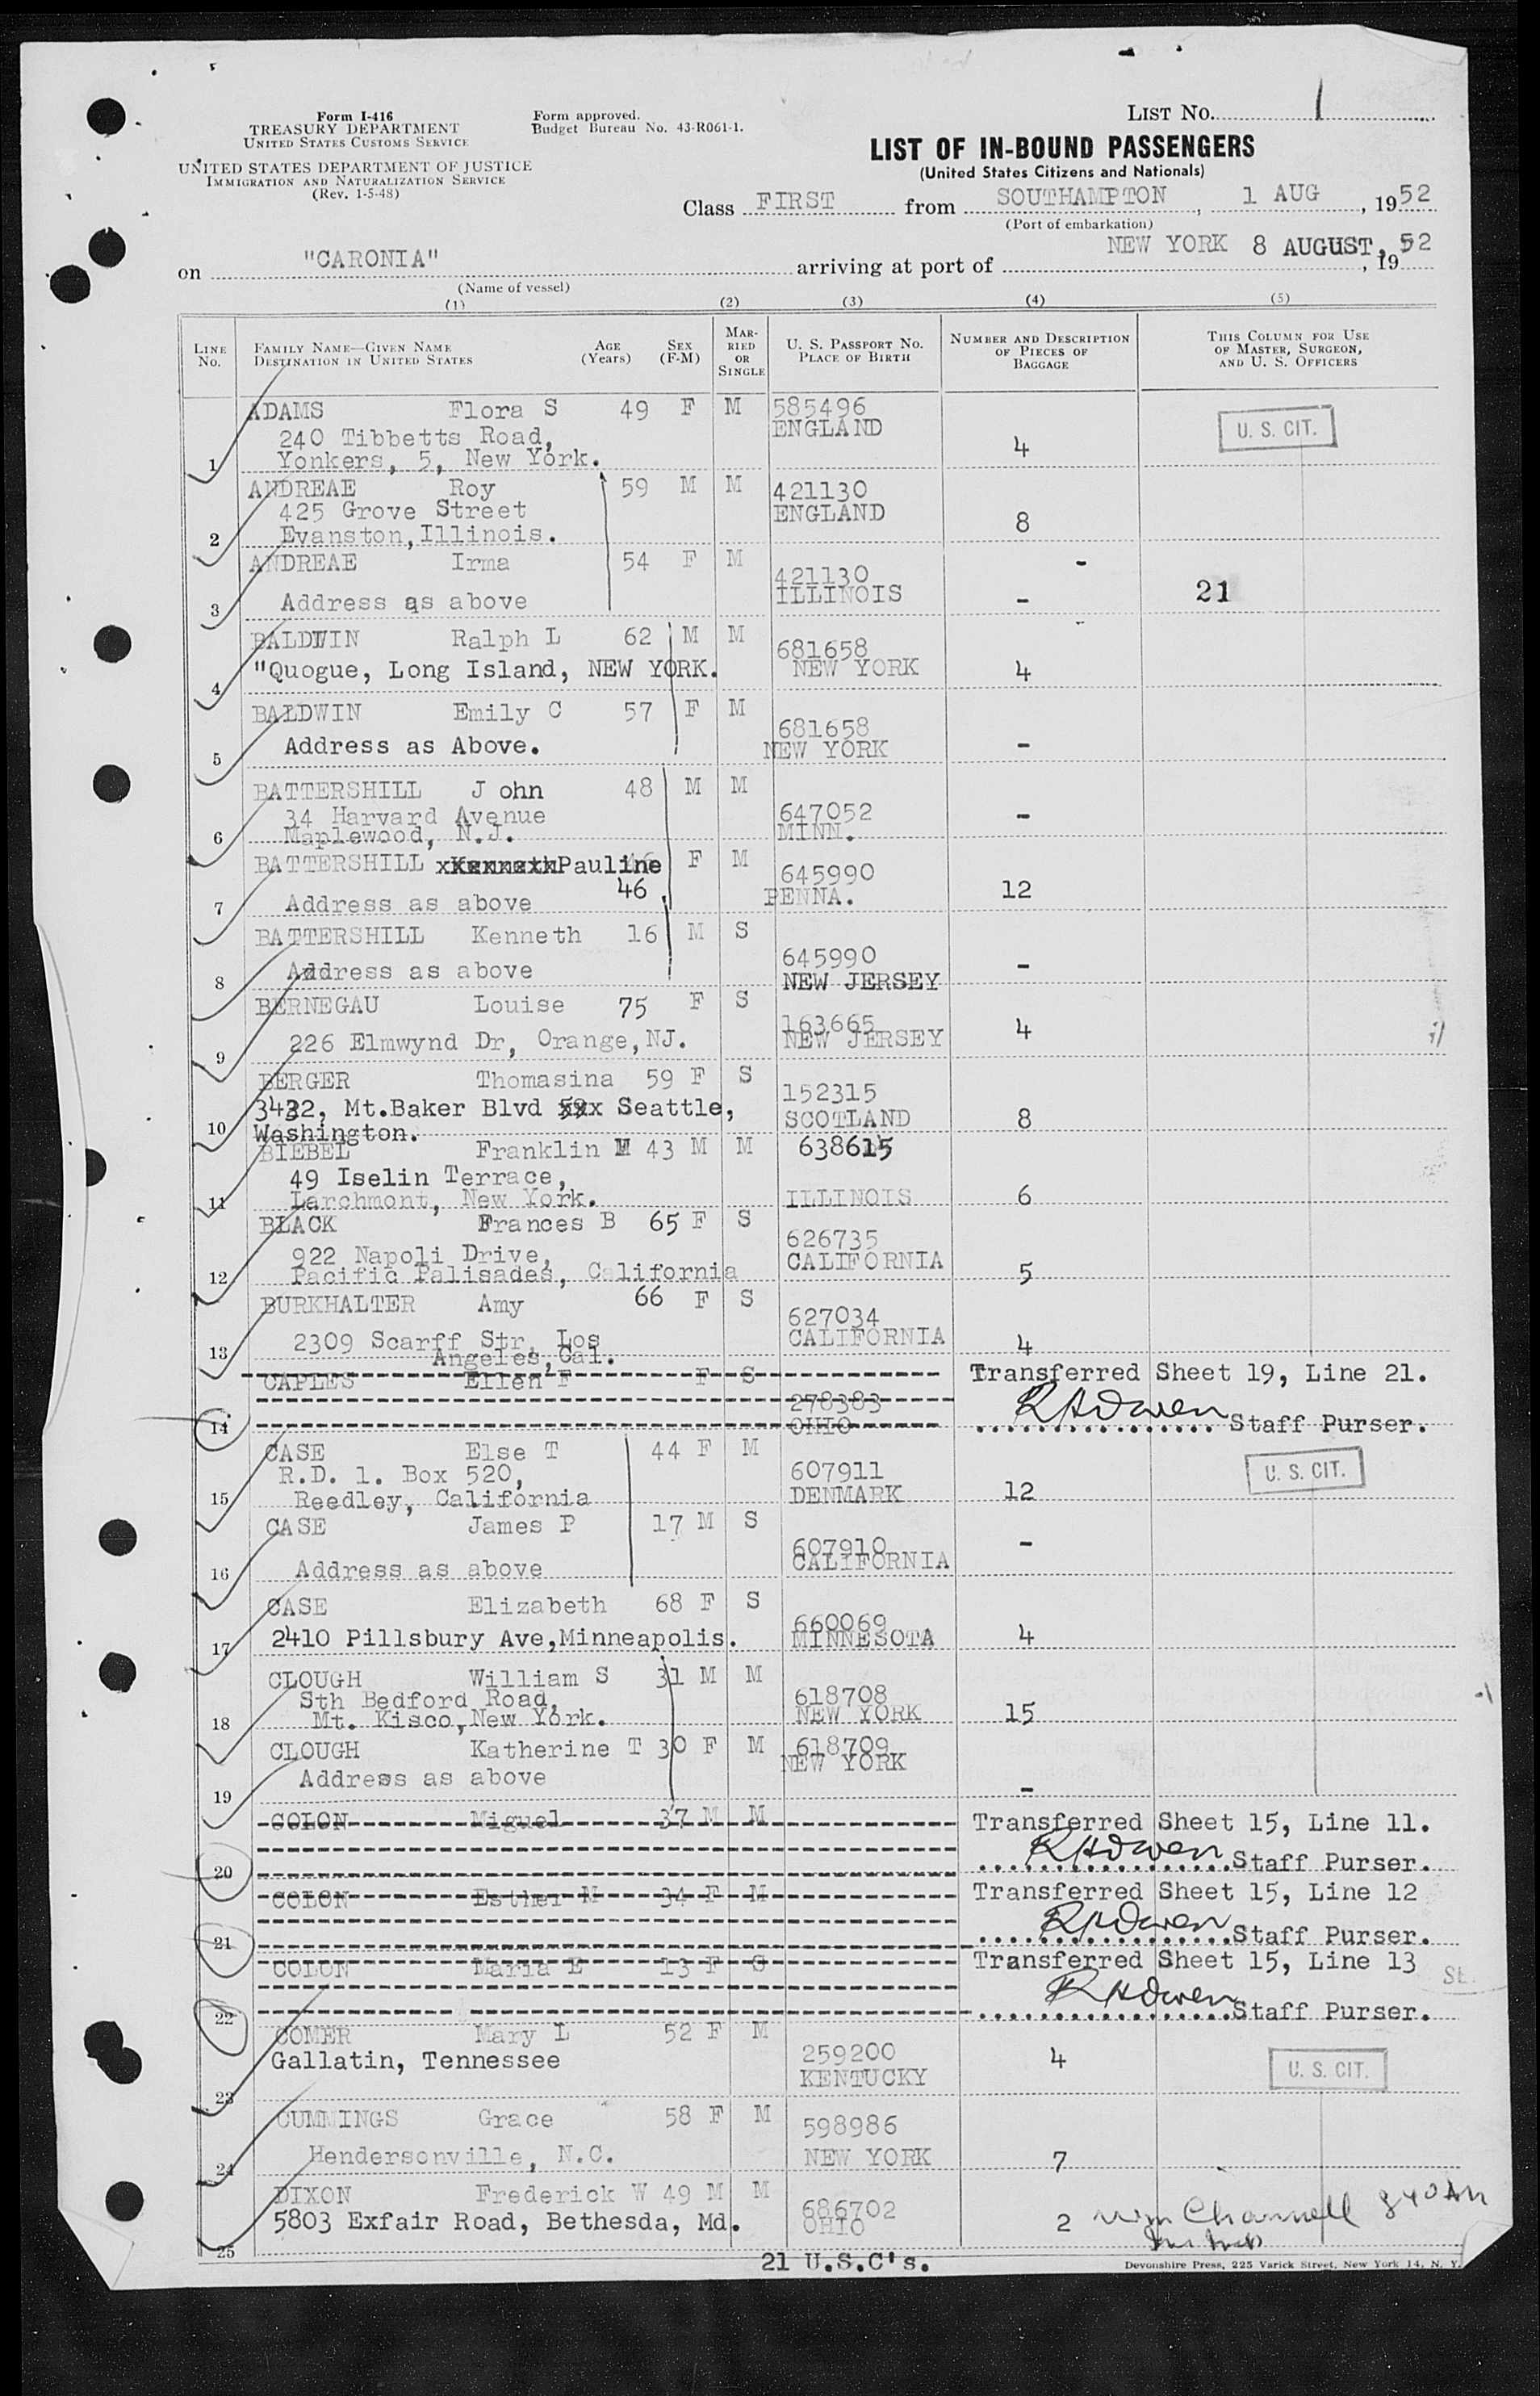 Form I-416
TREASURY DEPARTMENT
UNITED STATES CUSTOMS SERVICE
UNITED STATES DEPARTMENT OF JUSTICE
IMMIGRATION AND NATURALIZATION SERVICE
(Rev. 1-5-48)
Form approved.
Budget Bureau No. 43-R061-1.
LIST NO. 1
LIST OF IN-BOUND PASSENGERS
(United States Citizens and Nationals)
Class FIRST from SOUTHAMPTON, 1 AUG, 1952
(Port of embarkation)
on "CARONIA" arriving at port of NEW YORK 8 AUGUST, 1952
(Name of vessel)
(1) (2) (3) (4) (5)
LINE NO. FAMILY NAME—GIVEN NAME DESTINATION IN UNITED STATES AGE (Years) SEX (F-M) MARRIED OR SINGLE U. S. PASSPORT NO. PLACE OF BIRTH NUMBER AND DESCRIPTION OF PIECES OF BAGGAGE THIS COLUMN FOR USE OF MASTER, SURGEON, AND U. S. OFFICERS
ADAMS Flora S 49 F M 585496
ENGLAND U. S. CIT.
240 Tibbetts Road, 4
1 Yonkers, 5, New York.
ANDREAE Roy 59 M M 421130
425 Grove Street ENGLAND
2 Evanston, Illinois. 8
ANDREAE Irma 54 F M 421130
3 Address as above ILLINOIS - 21
BALDWIN Ralph L 62 M M 681658
4 "Quogue, Long Island, NEW YORK. NEW YORK 4
BALDWIN Emily C 57 F M 681658
5 Address as Above. NEW YORK -
BATTERSHILL J ohn 48 M M
34 Harvard Avenue 647052 -
6 Maplewood, N.J. MINN.
BATTERSHILL xKennethxPauline F M 645990
46
7 Address as above PENNA. 12
BATTERSHILL Kenneth 16 M S 645990
8 Address as above NEW JERSEY -
BERNEGAU Louise 75 F S 163665
9 226 Elmwynd Dr, Orange, NJ. NEW JERSEY 4
BERGER Thomasina 59 F S 152315
10 3432, Mt.Baker Blvd xxx Seattle, SCOTLAND 8
Washington.
BIEBEL Franklin M 43 M M 638615
49 Iselin Terrace,
11 Larchmont, New York. ILLINOIS 6
BLACK Frances B 65 F S 626735
922 Napoli Drive, CALIFORNIA
12 Pacific Palisades, California 5
BURKHALTER Amy 66 F S 627034
13 2309 Scarff Str, Los CALIFORNIA 4
Angeles, Cal.
CAPLES Ellen F F S Transferred Sheet 19, Line 21.
278383
14 OHIO RHOwen Staff Purser.
CASE Else T 44 F M 607911 U. S. CIT.
R.D. 1. Box 520,
15 Reedley, California DENMARK 12
CASE James P 17 M S 607910 -
16 Address as above CALIFORNIA
CASE Elizabeth 68 F S 660069
17 2410 Pillsbury Ave,Minneapolis. MINNESOTA 4
CLOUGH William S 31 M M 618708
Sth Bedford Road,
18 Mt. Kisco, New York. NEW YORK 15
CLOUGH Katherine T 30 F M 618709
19 Address as above NEW YORK -
COLON Miguel 37 M M Transferred Sheet 15, Line 11.
20 RHOwen Staff Purser.
COLON Esther M 34 F M Transferred Sheet 15, Line 12
21 RHOwen Staff Purser.
COLON Maria E 13 F S Transferred Sheet 15, Line 13
22 RHOwen Staff Purser.
COMER Mary L 52 F M 259200 4 U. S. CIT.
23 Gallatin, Tennessee KENTUCKY
CUMMINGS Grace 58 F M 598986
24 Hendersonville, N.C. NEW YORK 7
DIXON Frederick W 49 M M 686702
5803 Exfair Road, Bethesda, Md. OHIO 2 Wm Channell
25
21 U.S.C's.
Devonshire Press, 225 Varick Street, New York 14, N. Y.